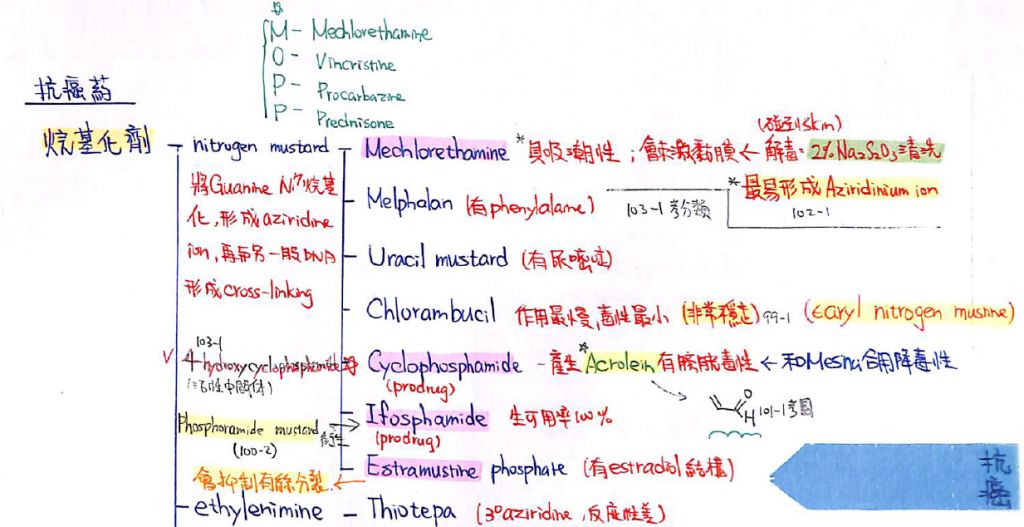 M - Mechlorethamine
O - Vincristine
P - Procarbazine
P - Prednisone
抗癌葯
烷基化劑
nitrogen mustard
將Guanine N7烷基
化,形成aziridine
ion,再和另一股DNA
形成cross-linking
Mechlorethamine *具吸潮性;會刺激黏膜←解毒:2%Na2S2O3清洗
(碰到skin)
*最易形成Aziridinium ion
102-1
Melphalan (有phenylalanie)
103-1考分類
Uracil mustard (有尿嘧啶)
Chlorambucil 作用最慢,毒性最小 (非常穩定) 99-1 (aryl nitrogen mustine)
103-1
V 4 hydroxycyclophosphamide
(活性中間体)
Cyclophosphamide - 產生*Acrolein有膀胱毒性 ← 和Mesna合用降毒性
(prodrug)
H
O
101-1考圖
Phosphoramide mustard
(100-2)
Ifosphamide 生可用率100%
(prodrug)
Estramustine phosphate (有estradiol結構)
會抑制有絲分裂
ethylenimine - Thiotepa (3°aziridine,反應性差)
抗癌